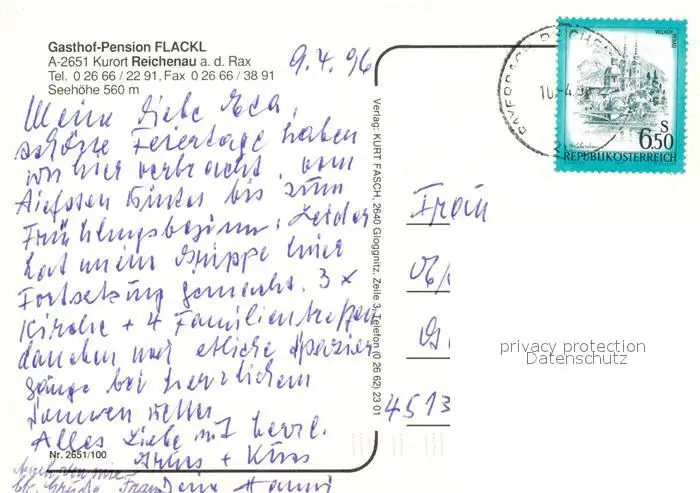 Gasthof-Pension FLACKL
A-2651 Kurort Reichenau a. d. Rax
Tel. 0 26 66 / 22 91, Fax 0 26 66 / 38 91
Seehöhe 560 m
9.4.96
Meine Liebe
schöne Feiertage haben
wir hier verbracht, vom
tiefsten Winter bis zum
Frühlingsbeginn, Leider
hat meine Grippe hier
Fortsetzung gemacht. 3 x
Kirche + 4 Familientreffen
daneben und etliche Spazier
gänge bei herrlichem
Sonnen wetter
Alles Liebe mit herzl.
Gruß + Kuss
Deine Hanni
Auch von mir
lb. Grüße
Nr. 2651/100
Verlag: KURT FASCH, 2640 Gloggnitz, Zeile 3, Telefon (0 26 62) 23 01
Frau
4513
PAYERBACH REICHEN
10.-4.96
VILLACH
PERAU
S
6.50
REPUBLIK ÖSTERREICH
privacy protection
Datenschutz